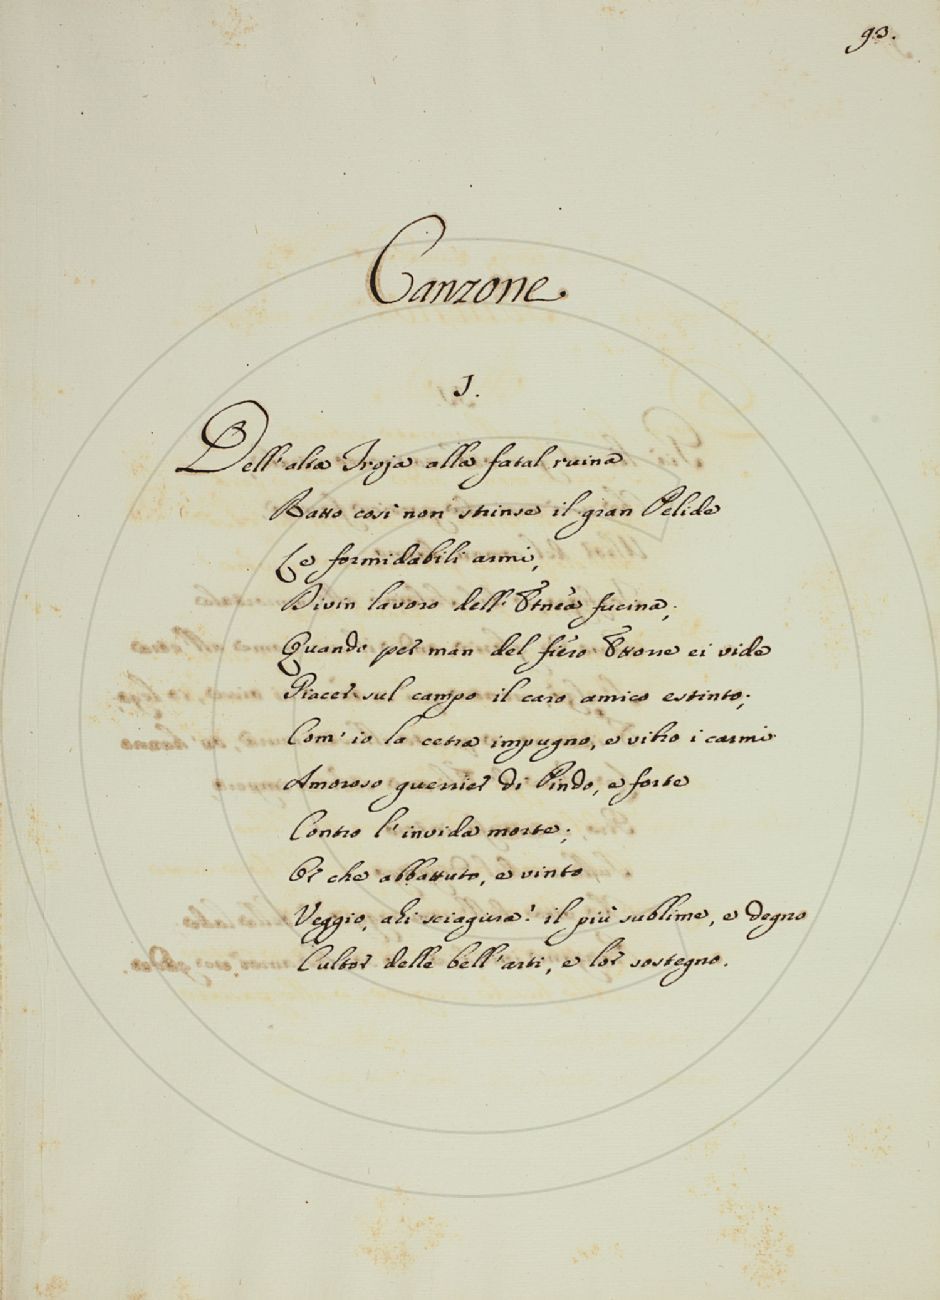 93.
Canzone.
I.
Dell'alta Troja alla fatal ruina
Ratto così non strinse il gran Pelide
Le formidabili armi,
Divin lavoro dell'Etnèa fucina,
Quando per man del fiero Ettorre ei vide
Giacer sul campo il caro amico estinto;
Com'io la cetra impugno, e vibro i carmi
Amoroso guerrier di Pindo, e forte
Contro l'invida morte;
Or che abbattuto, e vinto
Veggio, ahi sciagura! il più sublime, e degno
Cultor delle bell'arti, e lor sostegno.